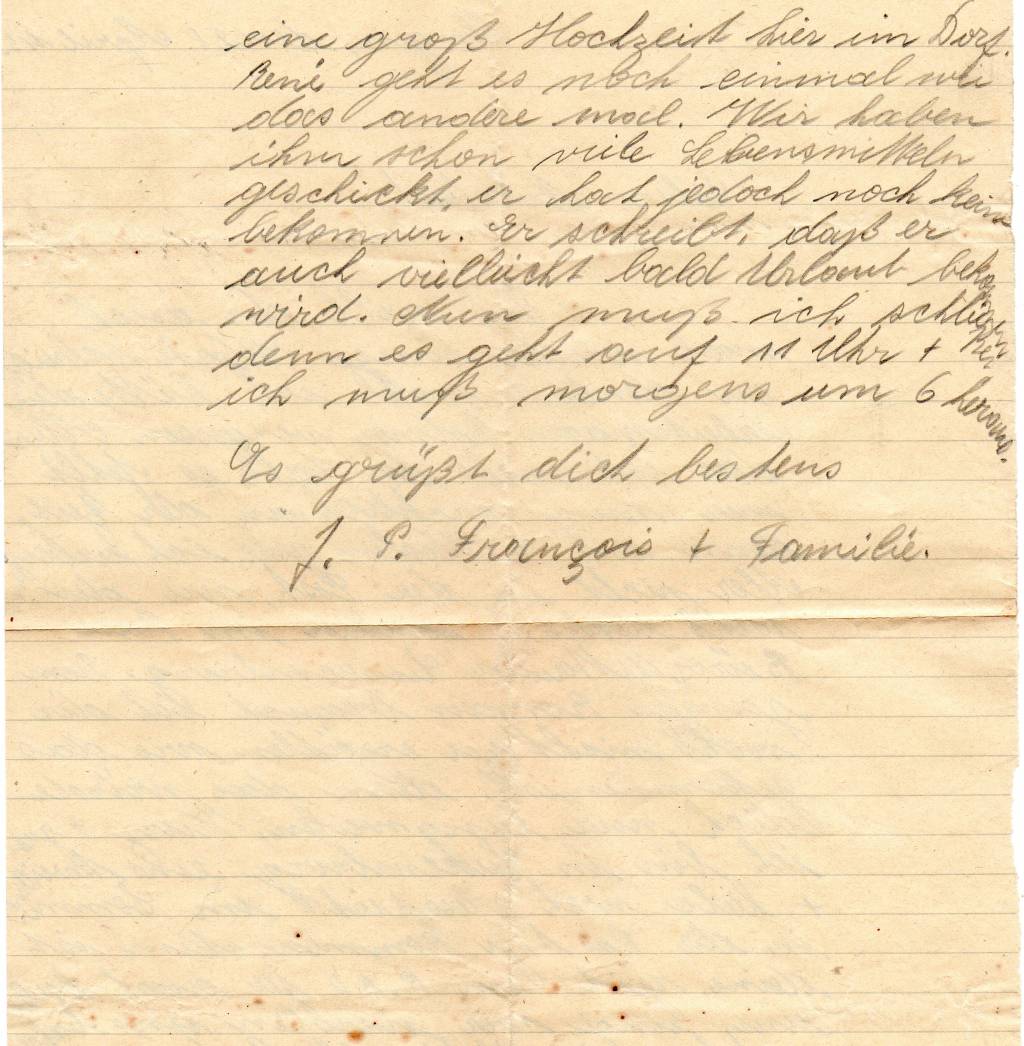 eine groß Hochzeit hier im Dorf.
René geht es noch einmal wei
das andere mal. Wir haben
ihm schon viele Lebensmitteln
geschickt, er hat jedoch noch keine
bekommen. Er schreibt, daß er
auch vielleicht bald Urlaub bekommen
wird. Nun muß ich schließen
denn es geht auf 11 Uhr +
ich muß morgens um 6 heraus.
Es grüßt dich bestens
J. P. François + Familie.